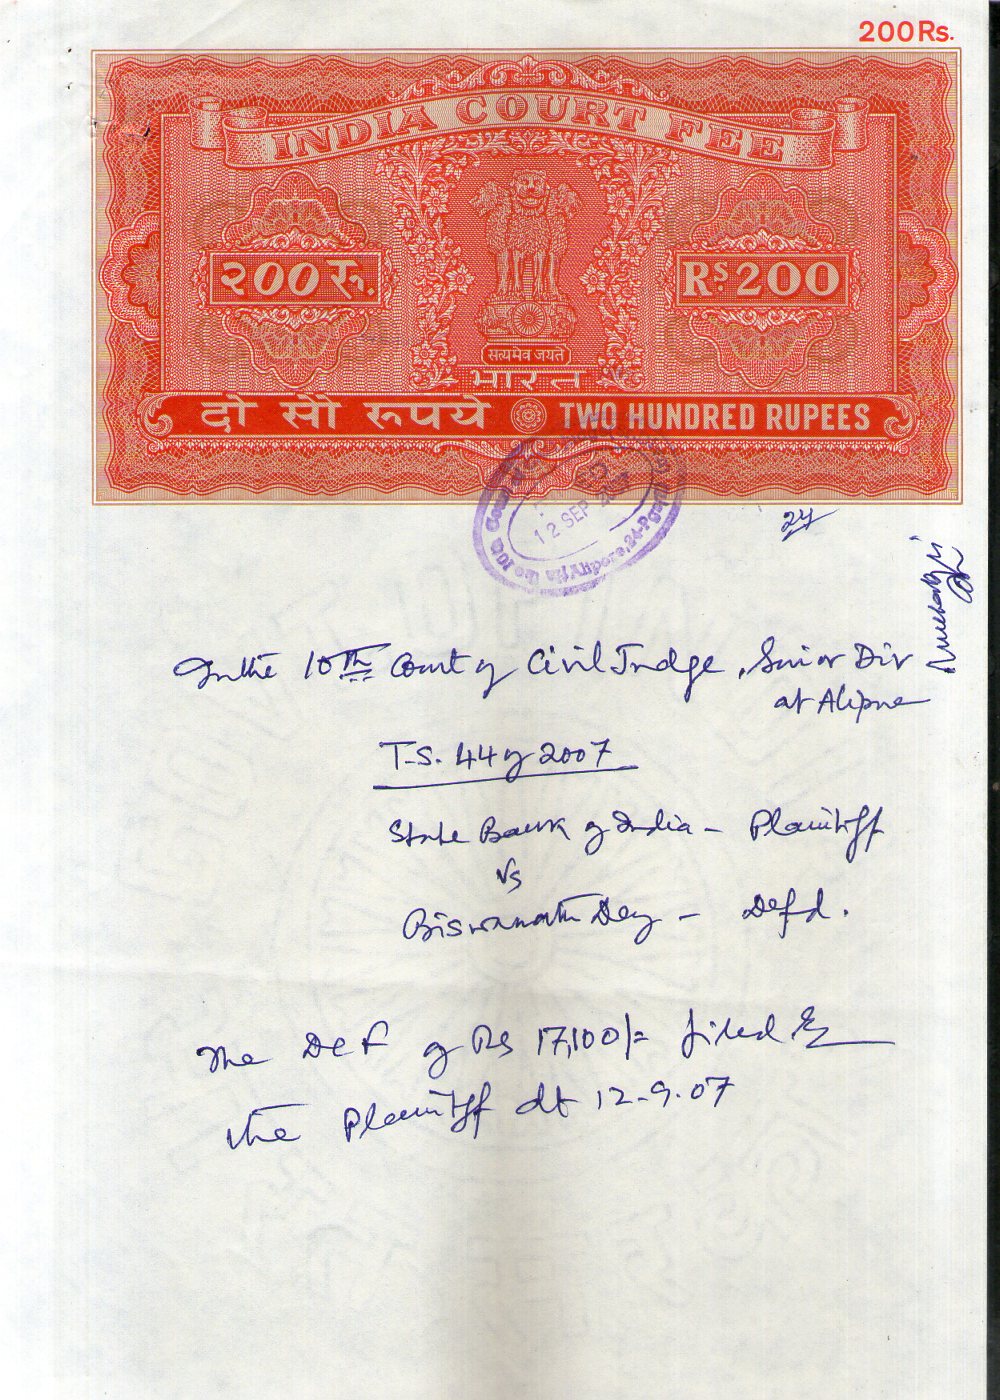 200 Rs.
INDIA COURT FEE
२00 रु.
RS. 200
सत्यमेव जयते
भारत
दो सौ रुपये TWO HUNDRED RUPEES
12 SEP 2007
24
In the 10th Court of Civil Judge, Senior Div
at Alipore
T.S. 44 of 2007
State Bank of India - Plaintiff
Vs
Biswanath Dey - Defd.
The DCF of Rs 17,100/= filed by
the Plaintiff dt 12.9.07